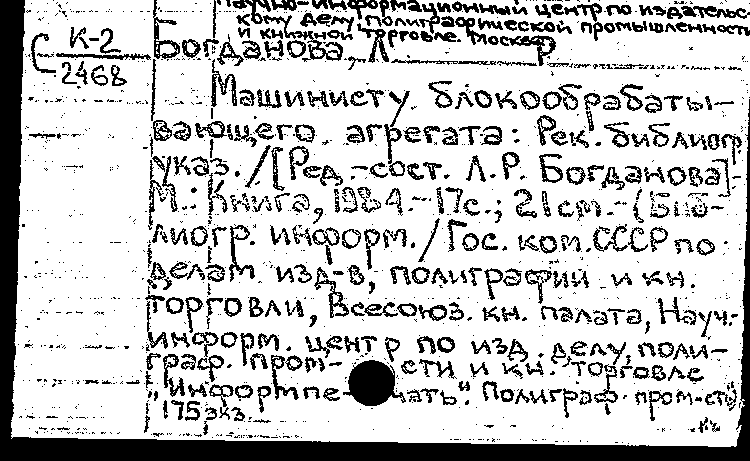 Научно-информационный центр по издательс-
кому делу, полиграфической промышленности
и книжной торговле. Москва
К-2
2468
Богданова, Л Р
Машинисту блокообрабаты-
вающего агрегата: Рек. библиогр
указ. /[Ред.-сост. Л.Р. Богданова]-
М.: Книга, 1984.-17с.; 21см.-(Биб-
лиогр. информ./Гос. ком.СССР по
делам изд-в, полиграфии и кн.
торговли, Всесоюз. кн. палата, Науч.-
информ. центр по изд. делу, поли-
граф. пром- сти и кн. торговле
„Информпечать". Полиграф. пром-сть)
175 экз.